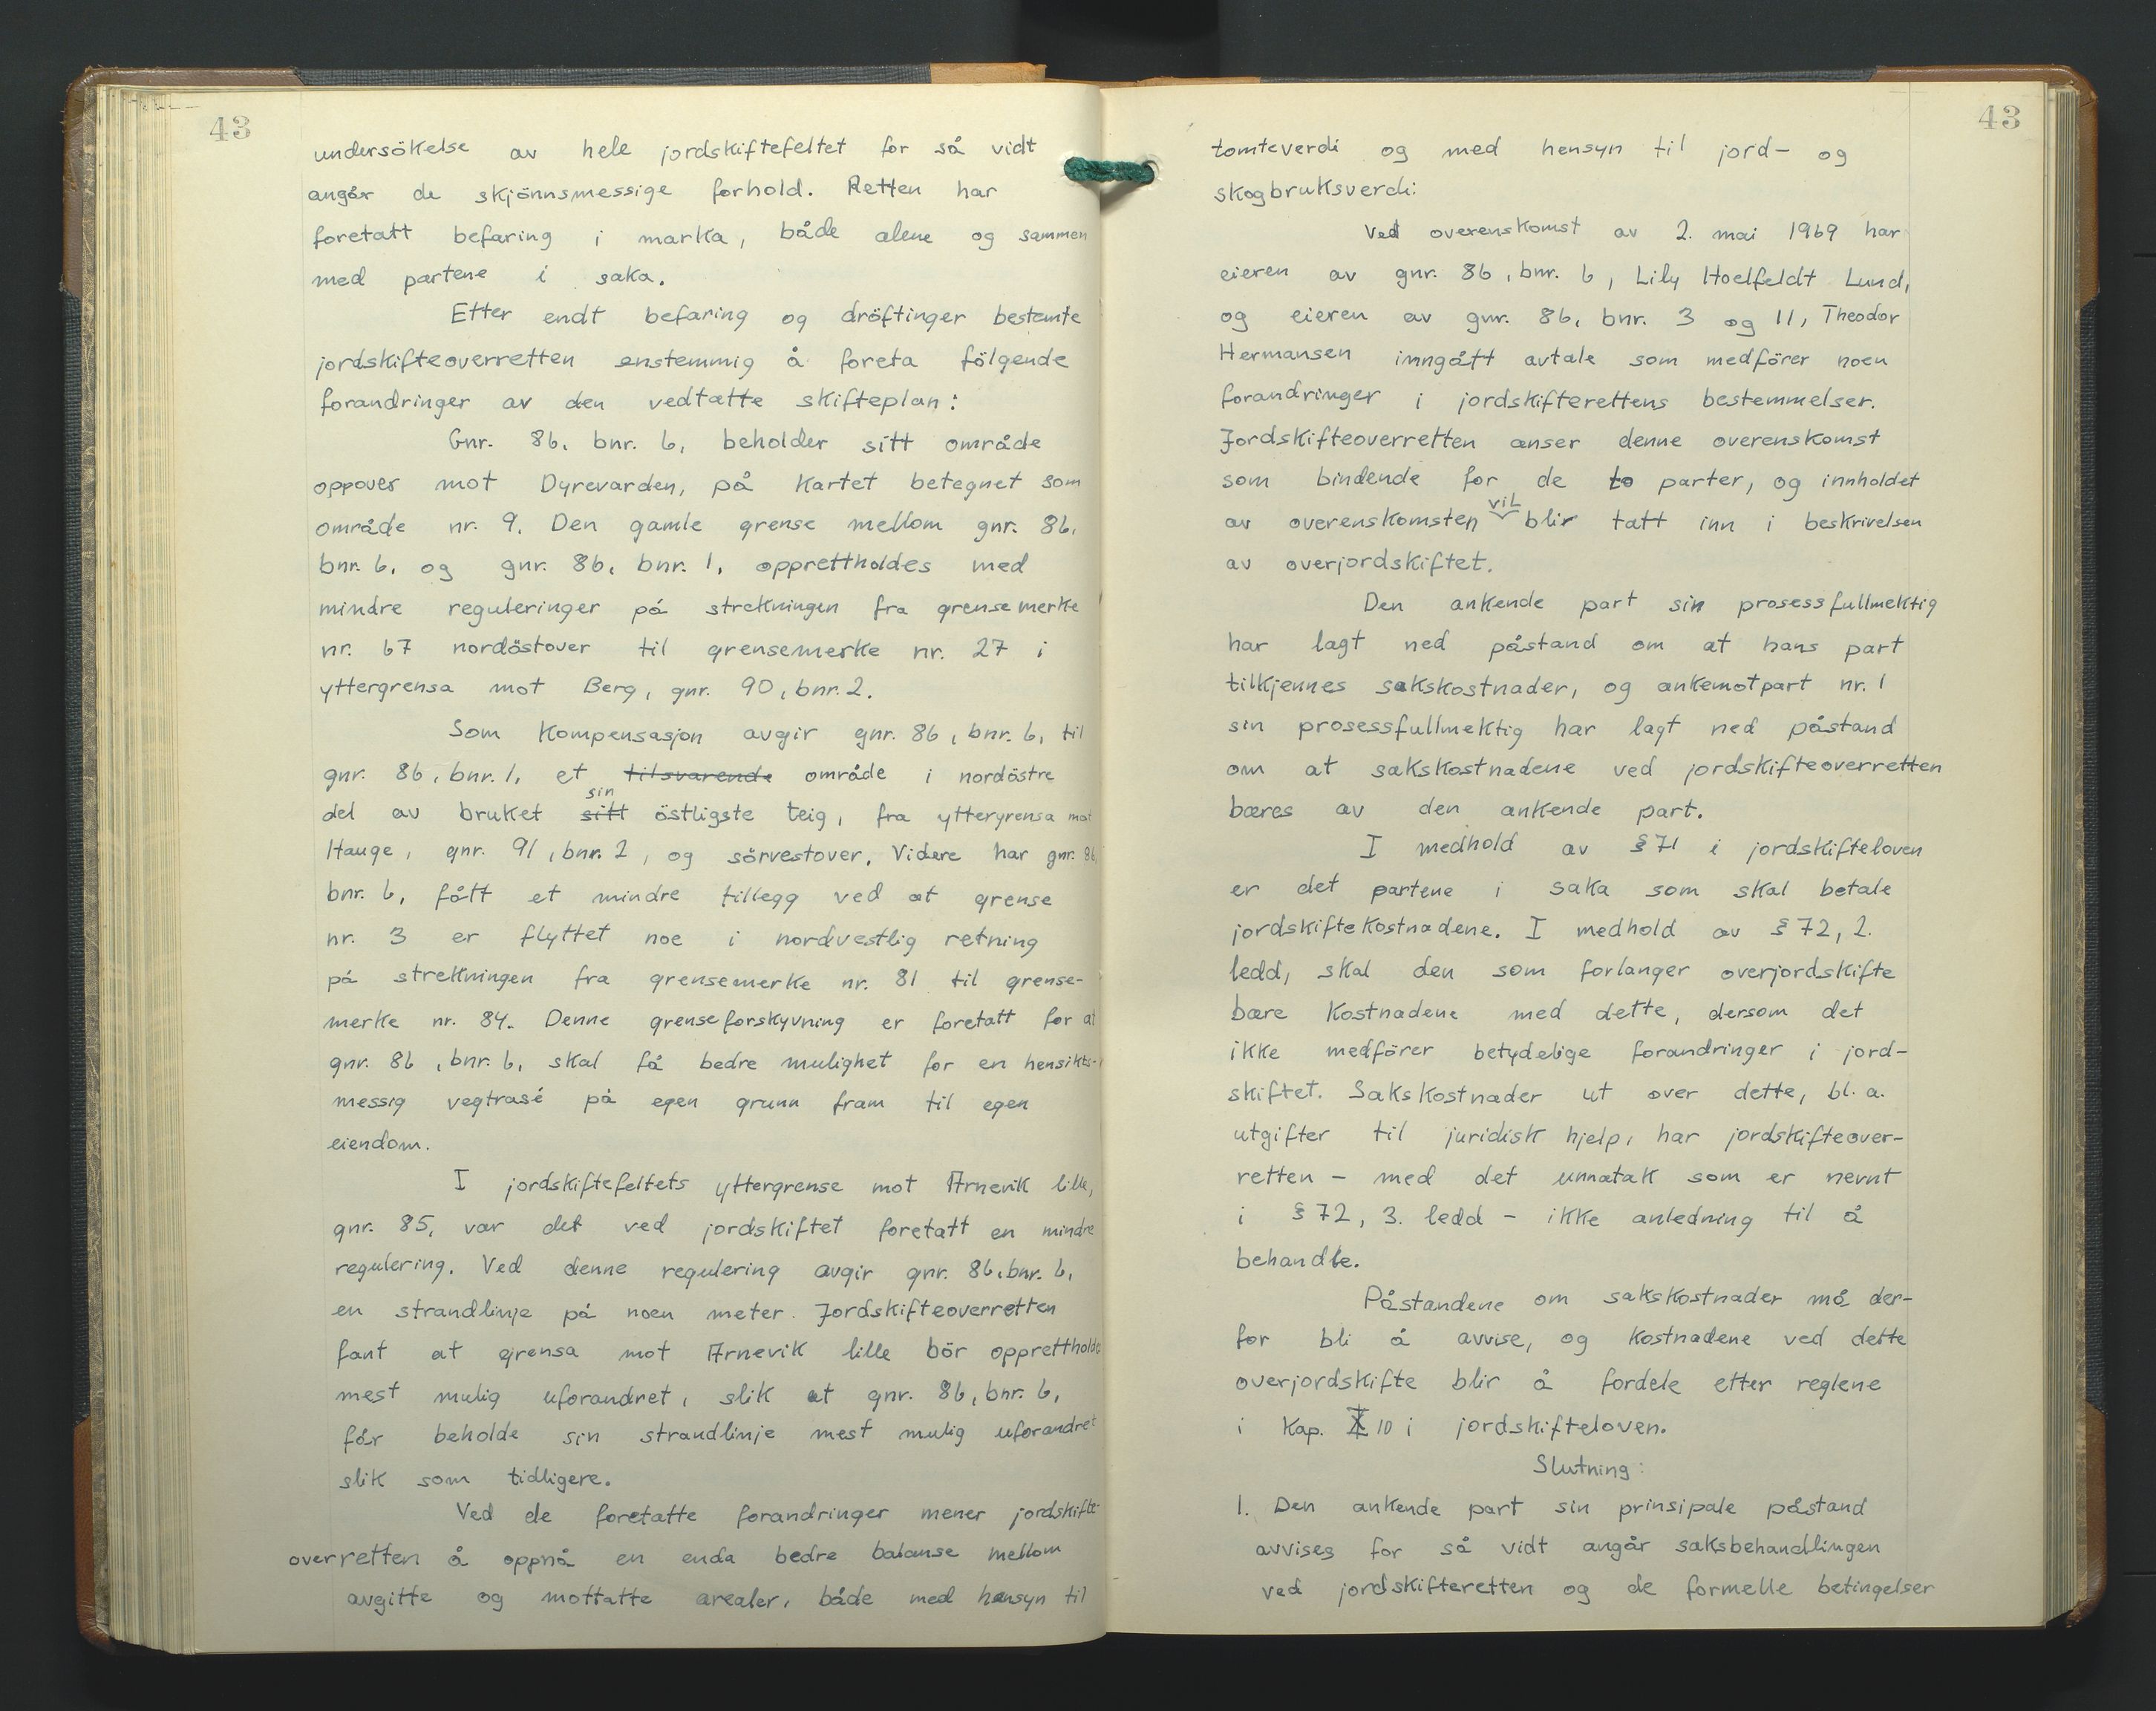 43
undersökelse av hele jordskiftefeltet for så vidt
angår de skjönnsmessige forhold. Retten har
foretatt befaring i marka, både alene og sammen
med partene i saka.
Etter endt befaring og dröftinger bestemte
jordskifteoverretten enstemmig å foreta fölgende
forandringer av den vedtatte skifteplan:
Gnr. 86, bnr. 6, beholder sitt område
oppover mot Dyrevarden, på kartet betegnet som
område nr. 9. Den gamle grense mellom gnr. 86,
bnr. 6, og gnr. 86, bnr. 1, opprettholdes med
mindre reguleringer på strekningen fra grensemerke
nr. 67 nordöstover til grensemerke nr. 27 i
yttergrensa mot Berg, gnr. 90, bnr. 2.
Som kompensasjon avgir gnr. 86, bnr. 6, til
gnr. 86, bnr. 1, et tilsvarende område i nordöstre
sin
del av bruket sitt östligste teig, fra yttergrensa mot
Hauge, gnr. 91, bnr. 2, og sörvestover. Videre har gnr. 86,
bnr. 6, fått et mindre tillegg ved at grense
nr. 3 er flyttet noe i nordvestlig retning
på strekningen fra grensemerke nr. 81 til grense-
merke nr. 84. Denne grenseforskyvning er foretatt for at
gnr. 86, bnr. 6, skal få bedre mulighet for en hensikts-
messig vegtrasé på egen grunn fram til egen
eiendom.
I jordskiftefeltets yttergrense mot Arnevik lille,
gnr. 85, var det ved jordskiftet foretatt en mindre
regulering. Ved denne regulering avgir gnr. 86, bnr. 6,
en strandlinje på noen meter. Jordskifteoverretten
fant at grensa mot Arnevik lille bör opprettholdes
mest mulig uforandret, slik at gnr. 86, bnr. 6,
får beholde sin strandlinje mest mulig uforandret
slik som tidligere.
Ved de foretatte forandringer mener jordskifte-
overretten å oppnå en enda bedre balanse mellom
avgitte og mottatte arealer, både med hensyn til
43
tomteverdi og med hensyn til jord- og
skogbruksverdi:
Ved overenskomst av 2. mai 1969 har
eieren av gnr. 86, bnr. 6, Lily Hoelfeldt Lund,
og eieren av gnr. 86, bnr. 3 og 11, Theodor
Hermansen inngått avtale som medförer noen
forandringer i jordskifterettens bestemmelser.
Jordskifteoverretten anser denne overenskomst
som bindende for de to parter, og innholdet
vil
av overenskomsten blir tatt inn i beskrivelsen
av overjordskiftet.
Den ankende part sin prosessfullmektig
har lagt ned påstand om at hans part
tilkjennes sakskostnader, og ankemotpart nr. 1
sin prosessfullmektig har lagt ned påstand
om at sakskostnadene ved jordskifteoverretten
bæres av den ankende part.
I medhold av § 71 i jordskifteloven
er det partene i saka som skal betale
jordskiftekostnadene. I medhold av § 72, 2.
ledd, skal den som forlanger overjordskifte
bære kostnadene med dette, dersom det
ikke medförer betydelige forandringer i jord-
skiftet. Sakskostnader ut over dette, bl. a.
utgifter til juridisk hjelp, har jordskifteover-
retten - med det unnatak som er nevnt
i § 72, 3. ledd - ikke anledning til å
behandle.
Påstandene om sakskostnader må der-
for bli å avvise, og kostnadene ved dette
overjordskifte blir å fordele etter reglene
i kap. 10 i jordskifteloven.
Slutning:
1. Den ankende part sin prinsipale påstand
avvises for så vidt angår saksbehandlingen
ved jordskifteretten og de formelle betingelser